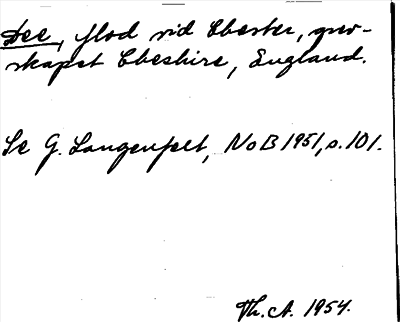 Dee, flod vid Chester, grev-
skapet Cheshire, England.
Se G. Langenfelt, NoB 1951, s. 101.
Th. A. 1954.